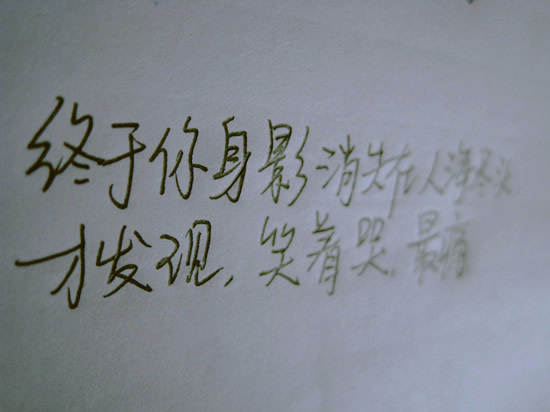 终于你身影消失在人海尽头
才发现,笑着哭,最痛